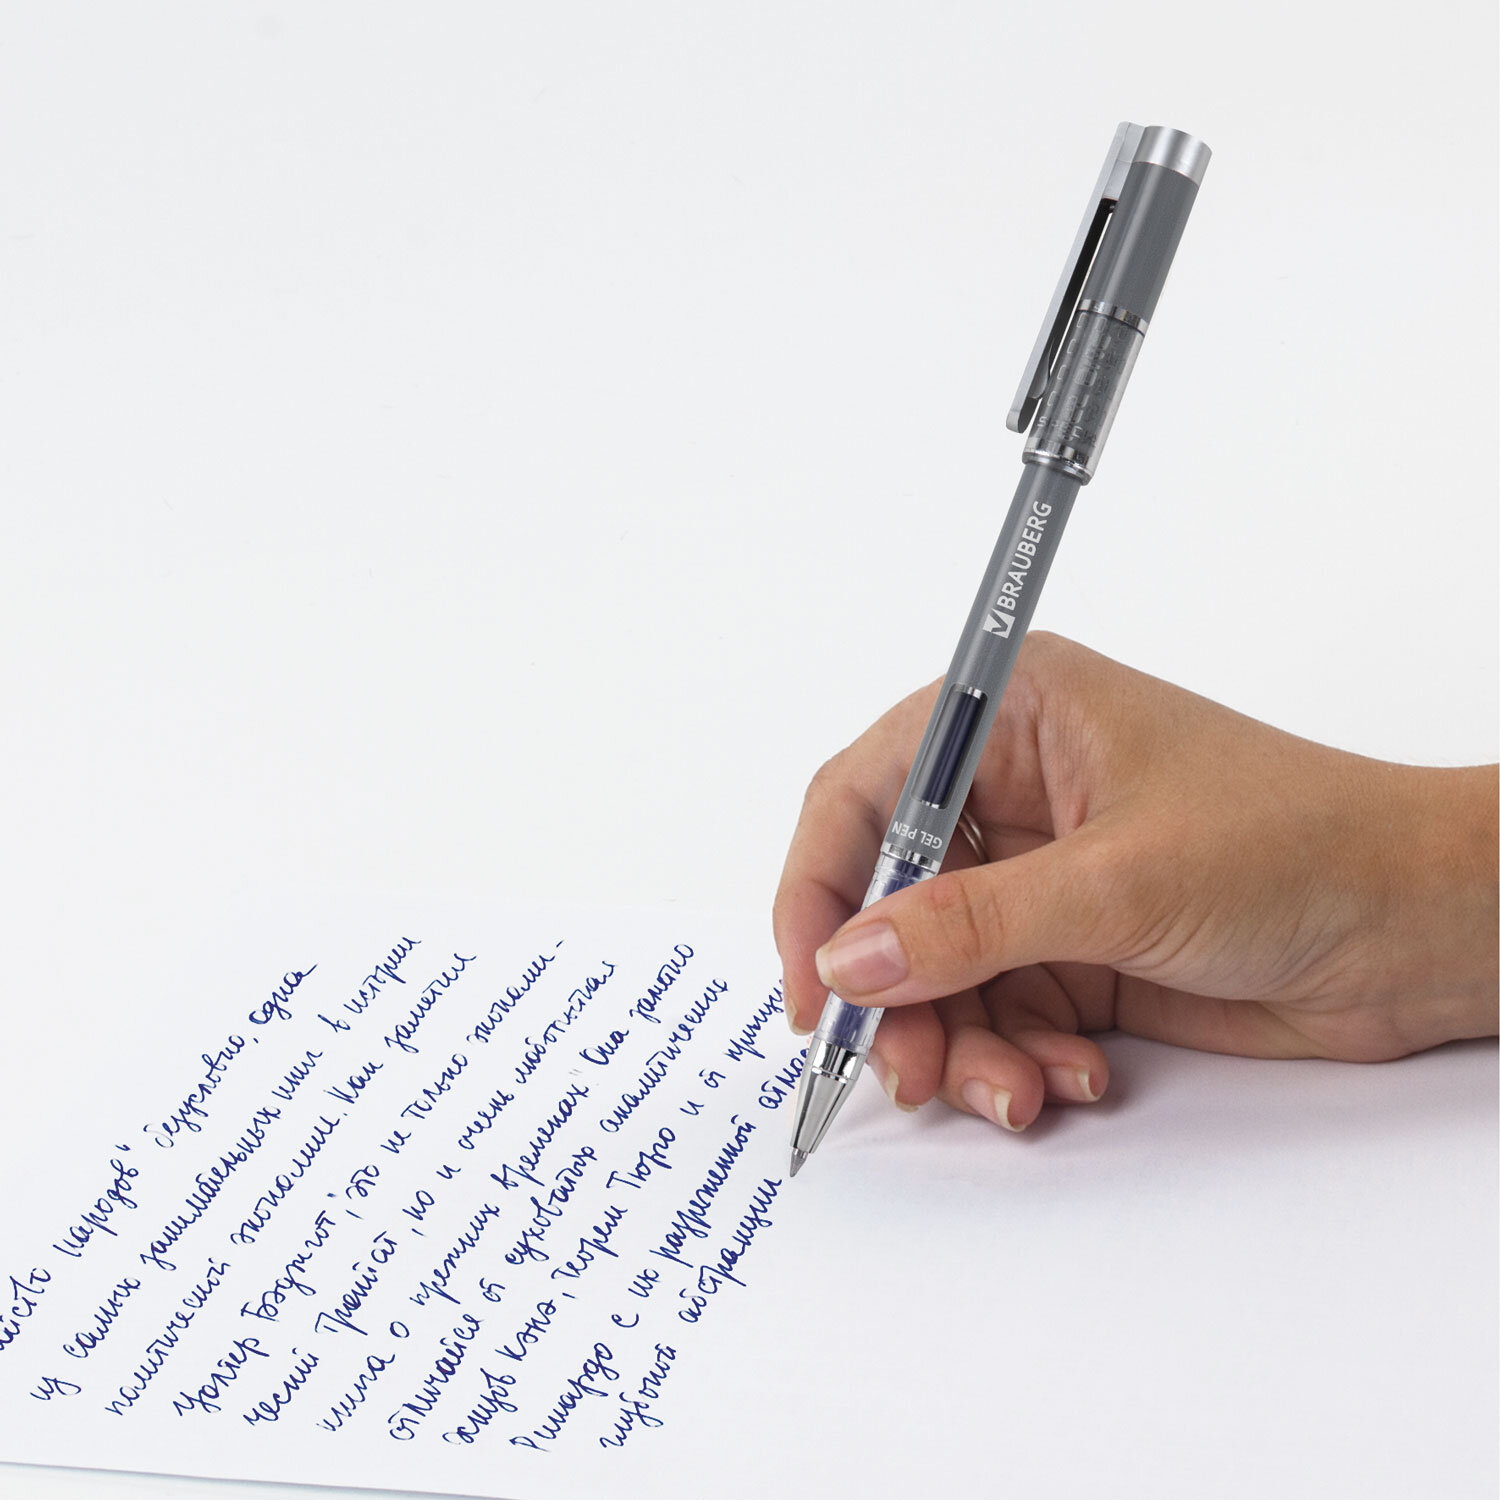 BRAUBERG
GEL PEN
народов" безусловно, одна
из самых занимательных книг в истории
политической экономии. Как заметил
Уолтер Бэджгот, "это не только экономи-
ческий трактат, но и очень любопытная
книга о прежних временах." Она заметно
отличается от суховатых аналитических
Кэнэ, Теорем Тюрго и от
Рикардо с их разреженной
глубокой абстракции